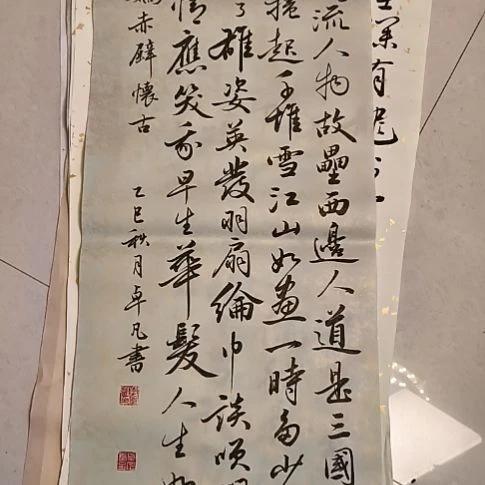 流人物故壘西邊人道是三國
捲起千堆雪江山如畫一時多少
了雄姿英發羽扇綸巾談笑
情應笑我早生華髮人生如
嬌赤壁懷古
乙巳秋月卓凡書